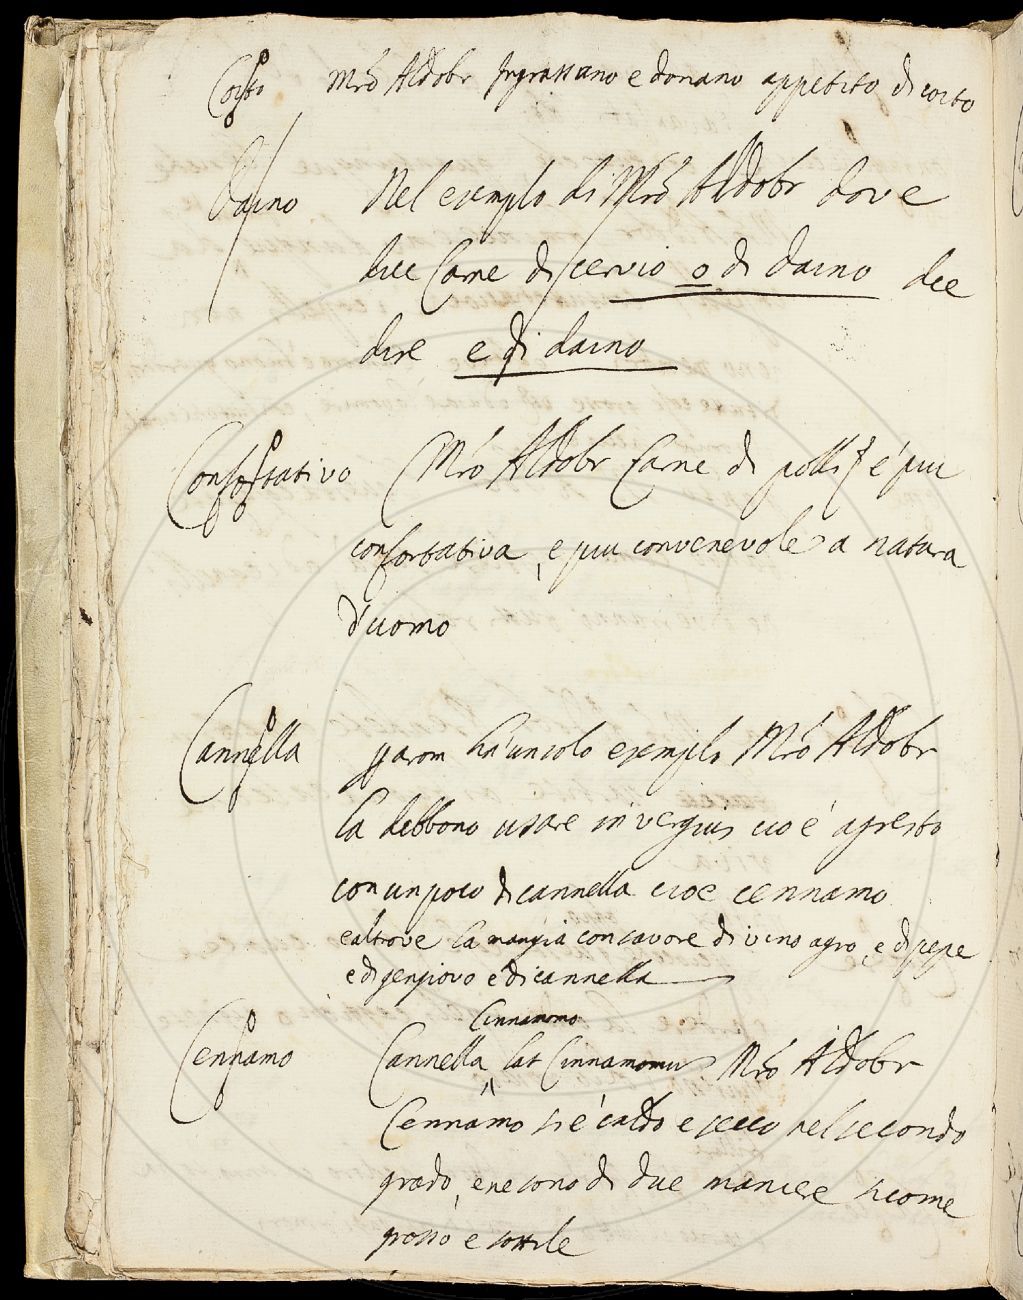 Coito Mrõ Aldobr Ingrassano e donano appetito di coito
Daino Nel exemplo di Mrõ Aldobr dove
dice Carne di cervio o di daino dee
dire e di daino
Confortativo Mrõ Aldobr Carne di polli è piu
confortativa, e piu convenevole a natura
d'uomo
Cannella ha un solo exemplo Mrõ Aldobr
La debbono usare in vergius cio è agresto
con un poco di cannella cioe cennamo
e altrove la mangia con savore di vino agro, e di pepe
e di gengiovo e di cannella
Cinnamomo
Cennamo Cannella, lat Cinnamomu Mrõ Aldobr
Cennamo si è caldo e secco nel secondo
grado, e ne sono di due maniere sicome
grosso e sottile